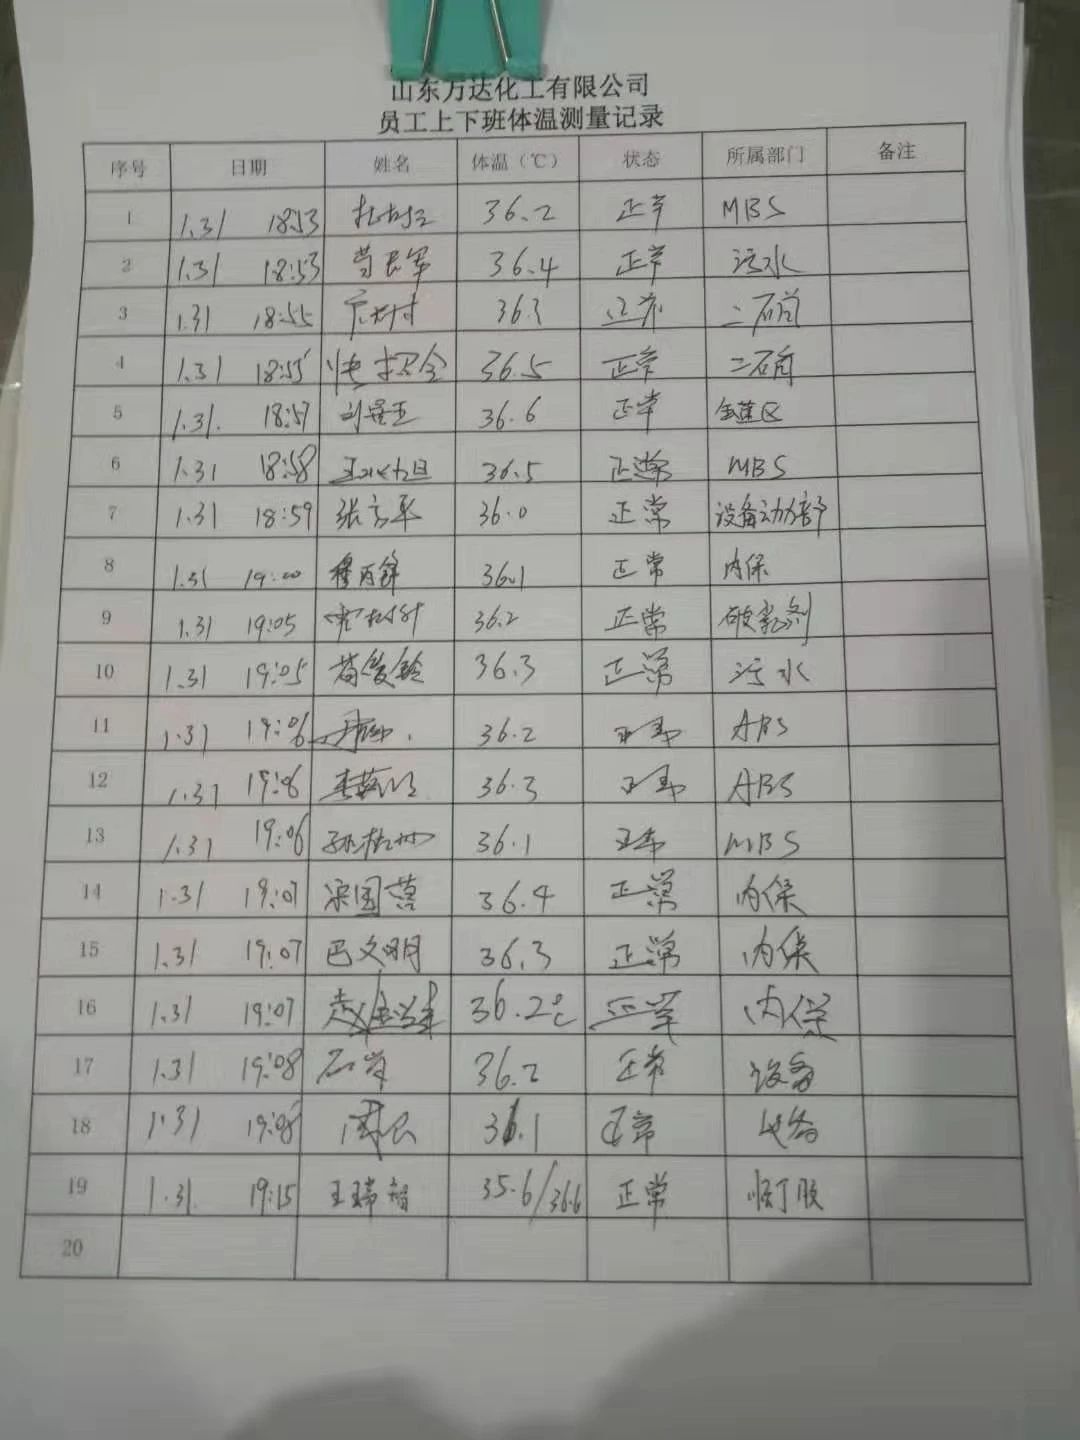 山东万达化工有限公司
员工上下班体温测量记录
序号 日期 姓名 体温（℃） 状态 所属部门 备注
1 1.31 18:53 36.2 正常 MBS
2 1.31 18:53 36.4 正常 污水
3 1.31 18:55 36.3 正常
4 1.31 18:55 36.5 正常
5 1.31. 18:57 36.6 正常
6 1.31 18:58 36.5 正常 MBS
7 1.31 18:59 张京平 36.0 正常 设备动力部
8 1.31 19:00 36.1 正常 内保
9 1.31 19:05 36.2 正常 破乳剂
10 1.31 19:05 36.3 正常 污水
11 1.31 19:06 36.2 正常 ABS
12 1.31 19:06 36.3 正常 ABS
13 1.31 19:06 36.1 正常 MBS
14 1.31 19:07 宋国营 36.4 正常 内保
15 1.31 19:07 巴文明 36.3 正常 内保
16 1.31 19:07 36.2℃ 正常 内保
17 1.31 19:08 石岩 36.2 正常 设备
18 1.31 19:08 36.1 正常 设备
19 1.31. 19:15 王瑞智 35.6/36.6 正常 顺丁胶
20